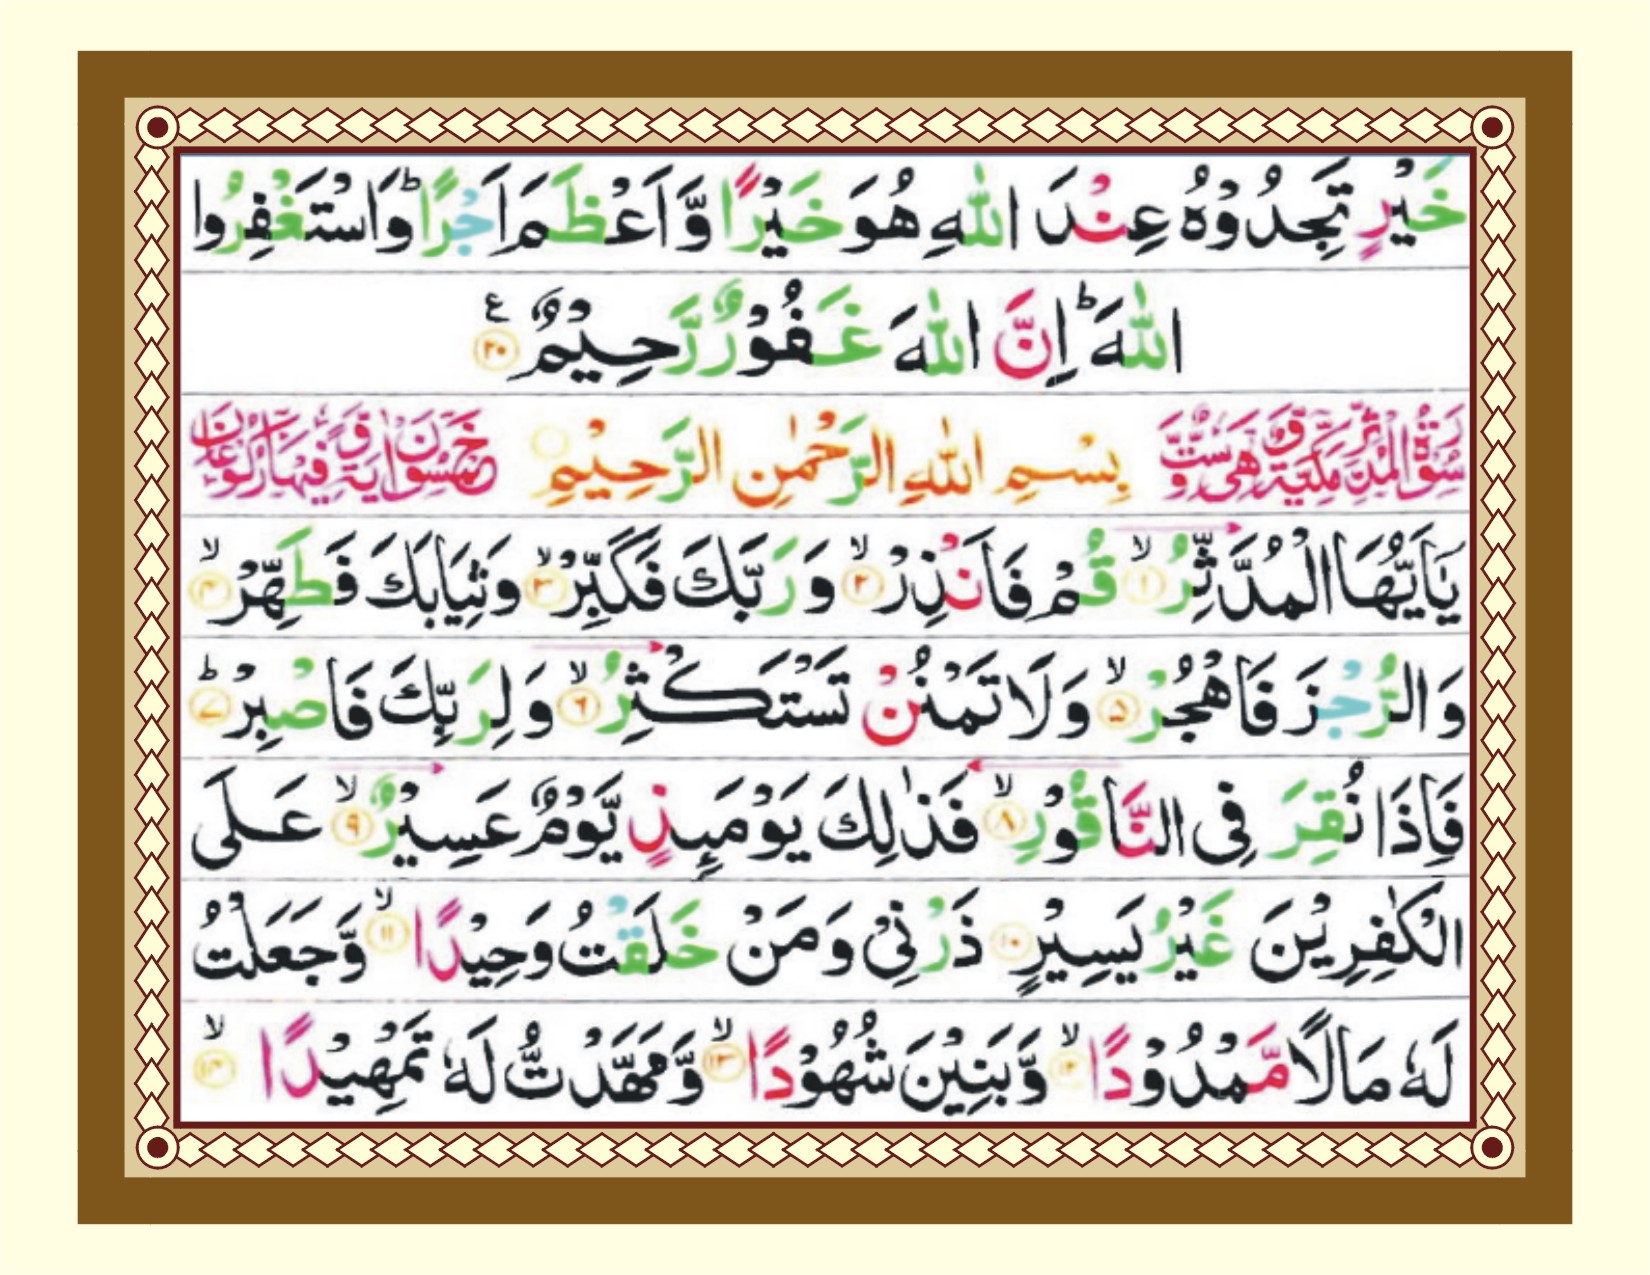 خَيْرٍ تَجِدُوْهُ عِنْدَ اللّٰهِ هُوَ خَيْرًا وَّاَعْظَمَ اَجْرًا ؕ وَاسْتَغْفِرُوا
اللّٰهَ ؕ اِنَّ اللّٰهَ غَفُوْرٌ رَّحِيْمٌ ۧ ﴿۲۰﴾
سُوْرَةُ الْمُدَّثِّرِ مَكِّيَّةٌ وَّهِیَ سِتٌّ وَّ بِسْمِ اللّٰهِ الرَّحْمٰنِ الرَّحِيْمِ خَمْسُوْنَ اٰيَةً وَّفِيْهَا رُكُوْعَانِ
يٰۤاَيُّهَا الْمُدَّثِّرُ ۙ﴿۱﴾ قُمْ فَاَنْذِرْ ۙ﴿۲﴾ وَرَبَّكَ فَكَبِّرْ ۙ﴿۳﴾ وَثِيَابَكَ فَطَهِّرْ ۙ﴿۴﴾
وَالرُّجْزَ فَاهْجُرْ ۙ﴿۵﴾ وَلَا تَمْنُنْ تَسْتَكْثِرُ ۙ﴿۶﴾ وَلِرَبِّكَ فَاصْبِرْ ؕ﴿۷﴾
فَاِذَا نُقِرَ فِی النَّاقُوْرِ ۙ﴿۸﴾ فَذٰلِكَ يَوْمَىِٕذٍ يَّوْمٌ عَسِيْرٌ ۙ﴿۹﴾ عَلَی
الْكٰفِرِيْنَ غَيْرُ يَسِيْرٍ ﴿۱۰﴾ ذَرْنِیْ وَمَنْ خَلَقْتُ وَحِيْدًا ۙ﴿۱۱﴾ وَّجَعَلْتُ
لَهٗ مَالًا مَّمْدُوْدًا ۙ﴿۱۲﴾ وَّبَنِيْنَ شُهُوْدًا ۙ﴿۱۳﴾ وَّمَهَّدْتُّ لَهٗ تَمْهِيْدًا ۙ﴿۱۴﴾